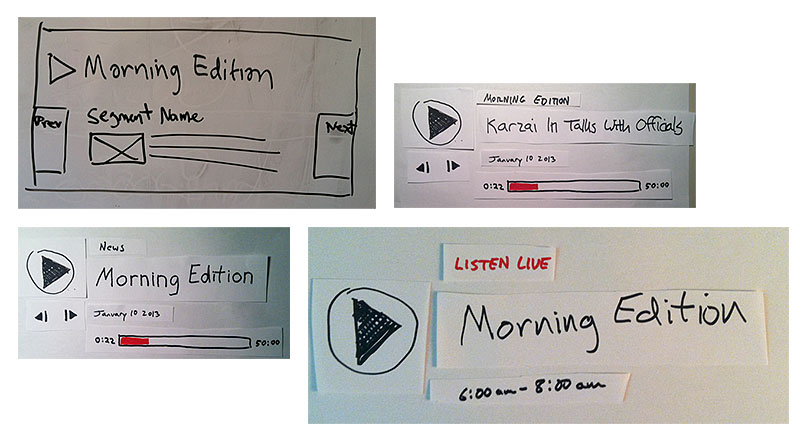 Morning Edition
Segment Name
Prev
Next
MORNING EDITION
Karzai In Talks With Officials
January 10 2013
0:22 50:00
News
Morning Edition
January 10 2013
0:22 50:00
LISTEN LIVE
Morning Edition
6:00 am - 8:00 am